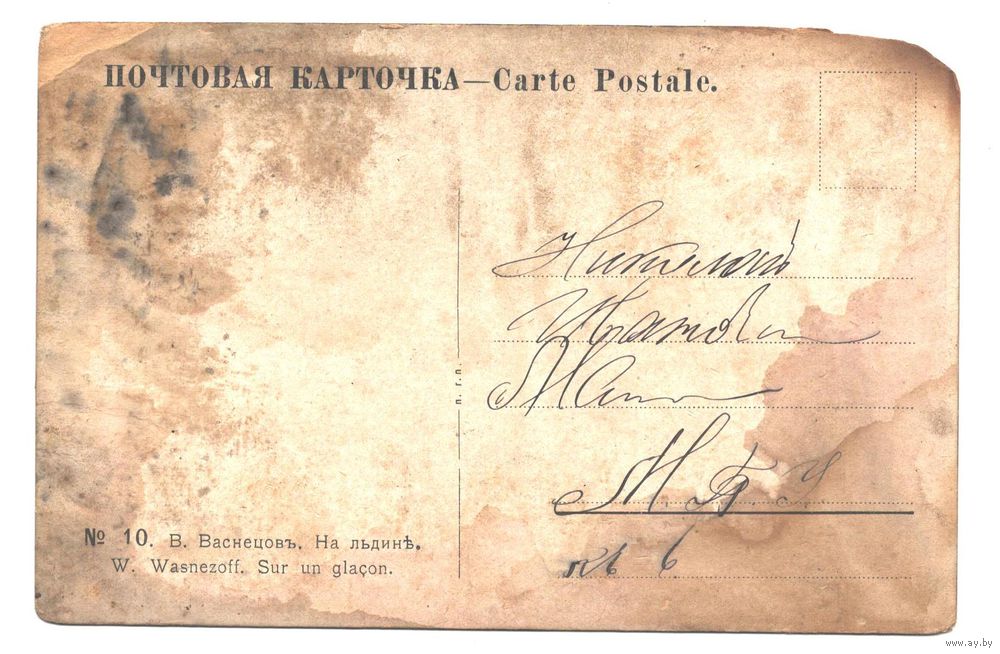 ПОЧТОВАЯ КАРТОЧКА—Carte Postale.
п. г. п.
М. Б. Ч
кв 6
№ 10. В. Васнецовъ. На льдинѣ.
W. Wasnezoff. Sur un glaçon.
www.ay.by